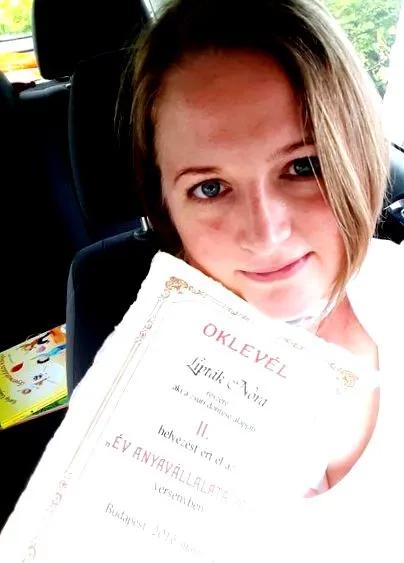 OKLEVÉL
Lipták Nóra
részére
aki a zsűri döntése alapján
II.
helyezést ért el az
„ÉV ANYAVÁLLALATA
versenyben
Budapest, 2016